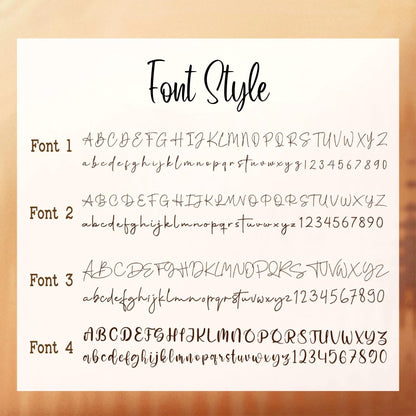 Font Style
Font 1 ABCDEFGHIJKLMNOPQRSTUVWXYZ
abcdefghijklmnopqrstuvwxyz1234567890
Font 2 ABCDEFGHIJKLMNOPQRSTUVWXYZ
abcdefghijklmnopqrstuvwxyz1234567890
Font 3 ABCDEFGHIJKLMNOPQRSTUVWXYZ
abcdefghijklmnopqrstuvwxyz1234567890
Font 4 ABCDEFGHIJKLMNOPQRSTUVWXYZ
abcdefghijklmnopqrstuvwxyz1234567890